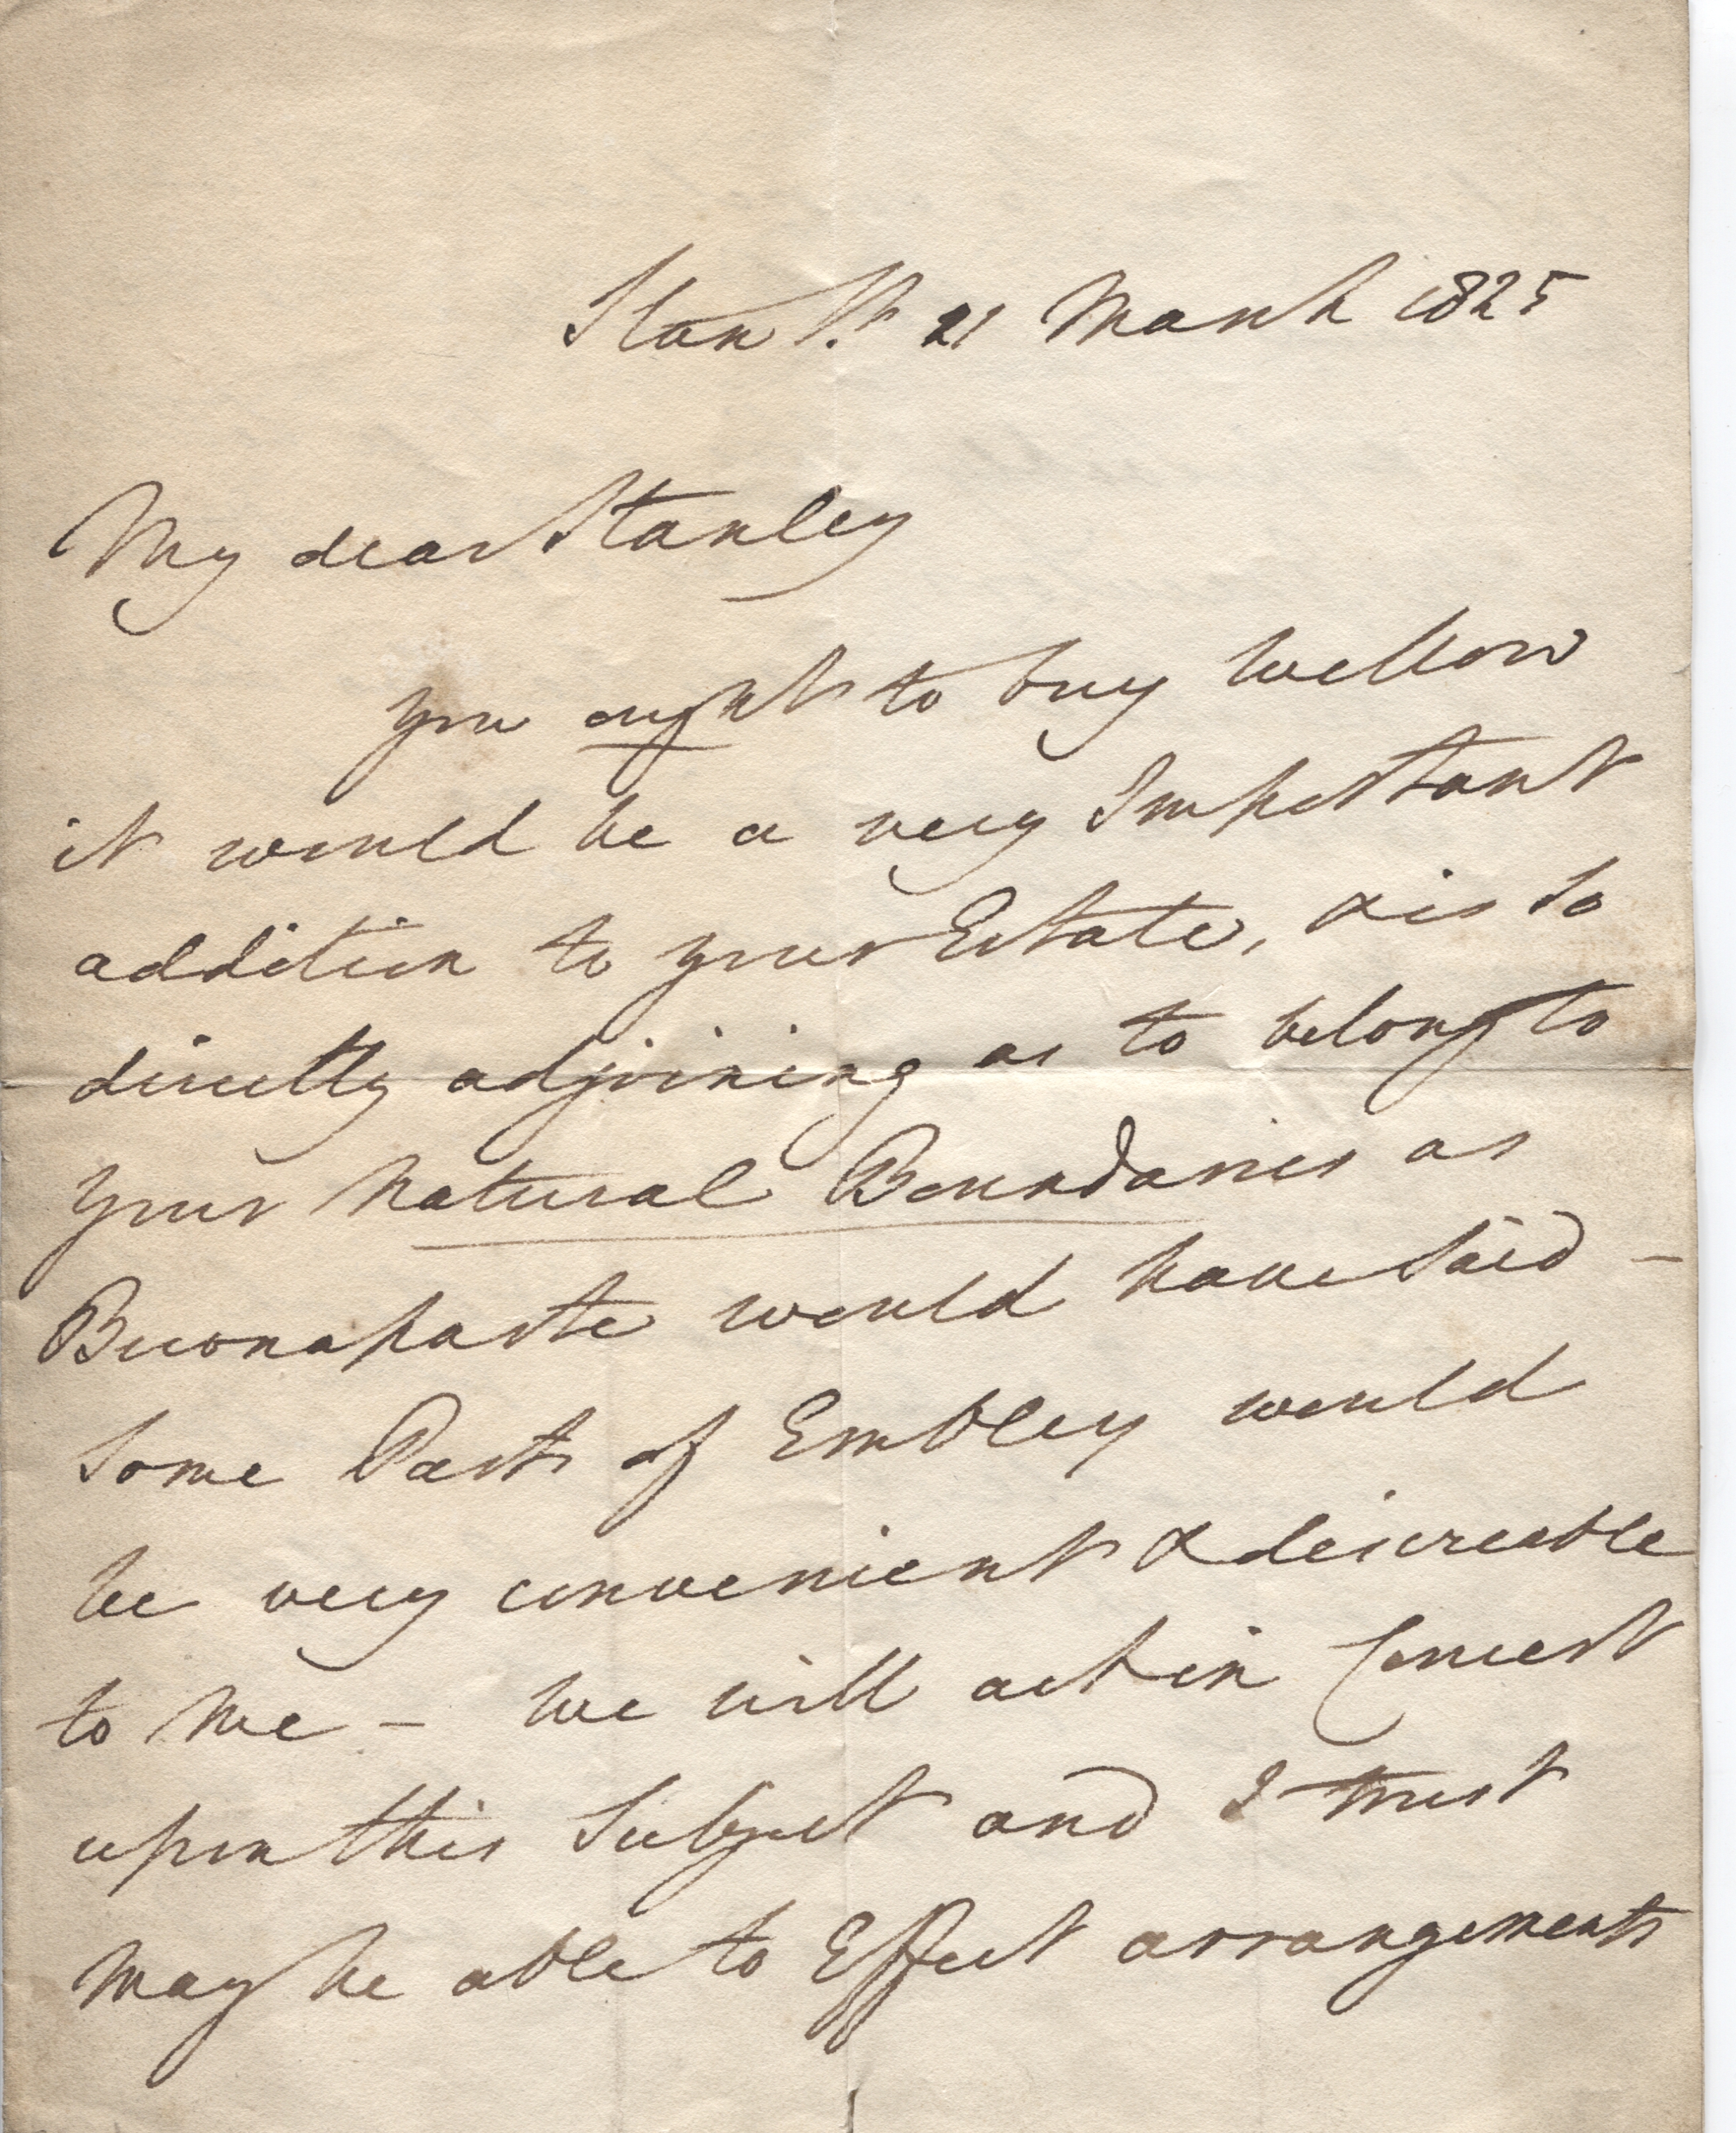 Stan St. 21 March 1825
My dear Stanley
you ought to buy Wellow
it would be a very Important
addition to your Estate, & is so
directly adjoining as to belong to
your Natural Boundaries as
Buonaparte would have said –
Some Parts of Embley would
be very convenient & desireable
to me – We will act in Concert
upon this Subject and I trust
may be able to Effect arrangements